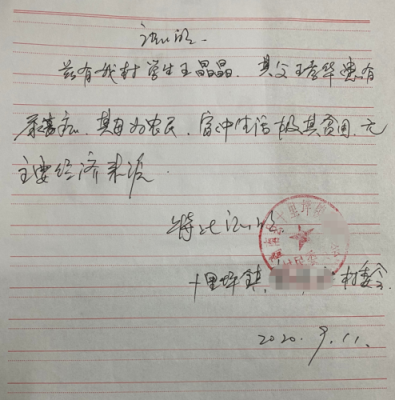 证明.
兹有我村学生王晶晶,其父王 华患有
尿毒症,其母为农民,家中生活极其贫困,无
主要经济来源.
特此证明
十里坪镇 村委会
2020.9.11.